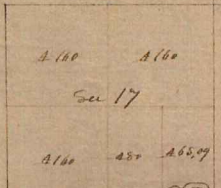 A 160 A 160
Sec 17
A 160 A 80 A 65,09